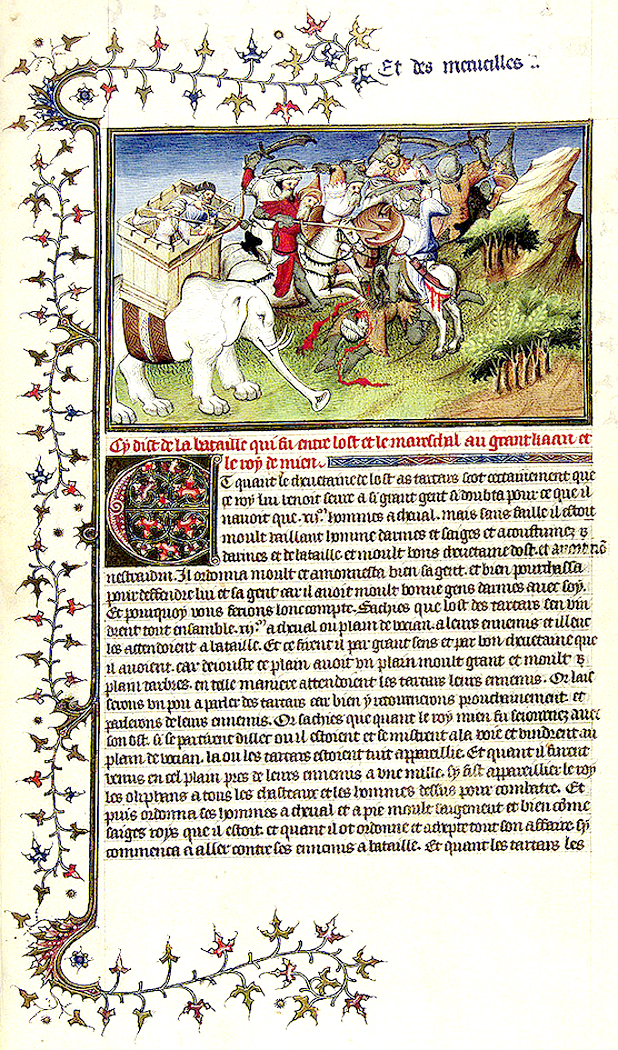 Et des merueilles
Cy dist de la bataille qui fu entre lost et le mareschal au grant kaan et
le roy de mien.
Et quant le cheuetaine de lost as tartars scot certainement que
ce roy lui venoit seure a si grant gent si doubta pour ce que il
nauoit que .xij.m hommes a cheual. mais sans faille il estoit
moult vaillant homme darmes et saiges et acoustumez
darmes et de bataille et moult bons cheuetaine dost. et
Il ordonna moult et amonnesta bien sa gent. et bien pourchassa
pour deffendre lui et sa gent car il auoit moult bonne gens darmes auec soy.
Et pourquoy vous feroions lonc compte. Sachies que lost des tartars sen vin
drent tout ensamble .xij.m a cheual ou plain de vocian. a leurs ennemis et illeuc
les attendoient a bataille. Et ce firent il par grant sens et par bon cheuetaine que
il auoient. car de iouste ce plain auoit vn plain moult grant et moult
plain darbres. en telle maniere attendoient les tartars leurs ennemis. Or lais
serons vn pou a parler des tartars car bien y retournerons prouchainement. et
parlerons de leurs ennemis. Or sachies que quant le roy mien fu seiournez auec
son ost. si se partirent dillec ou il estoient et se mistrent a la voie et vindrent au
plain de vocian. la ou les tartars estoient tuit appareillie. Et quant il furent
venus en cel plain pres de leurs ennemis a vne mille. sy fist appareillier le roy
les oliphans a tous les chasteaux et les hommes dessus pour combatre. Et
puis ordonna ses hommes a cheual et a pie moult saigement et bien cõme
saiges roys que il estoit. et quant il ot ordonne et adrepte tout son affaire. sy
commenca a aller contre ses ennemis a bataille. Et quant les tartars les